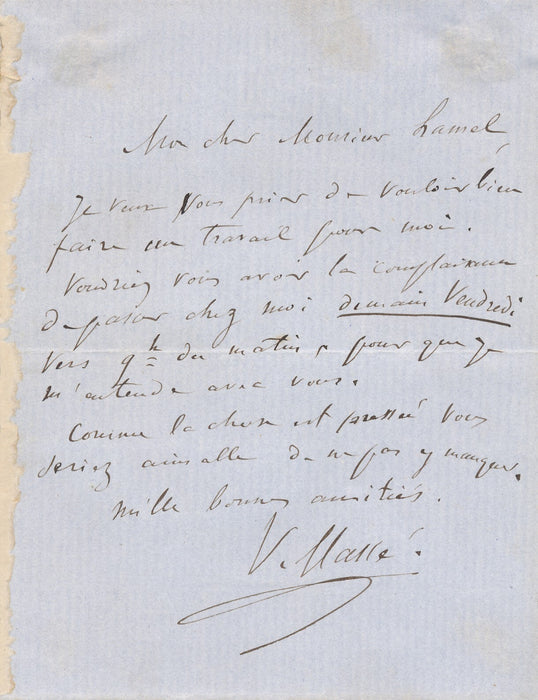 Mon cher Monsieur Hamel,
Je veux vous prier de vouloir bien
faire un travail pour moi.
Voudriez vous avoir la complaisance
de passer chez moi demain Vendredi
vers 9h du matin, pour que je
m'entende avec vous.
Comme la chose est pressée vous
seriez aimable de ne pas y manquer.
Mille bonnes amitiés.
V. Massé.